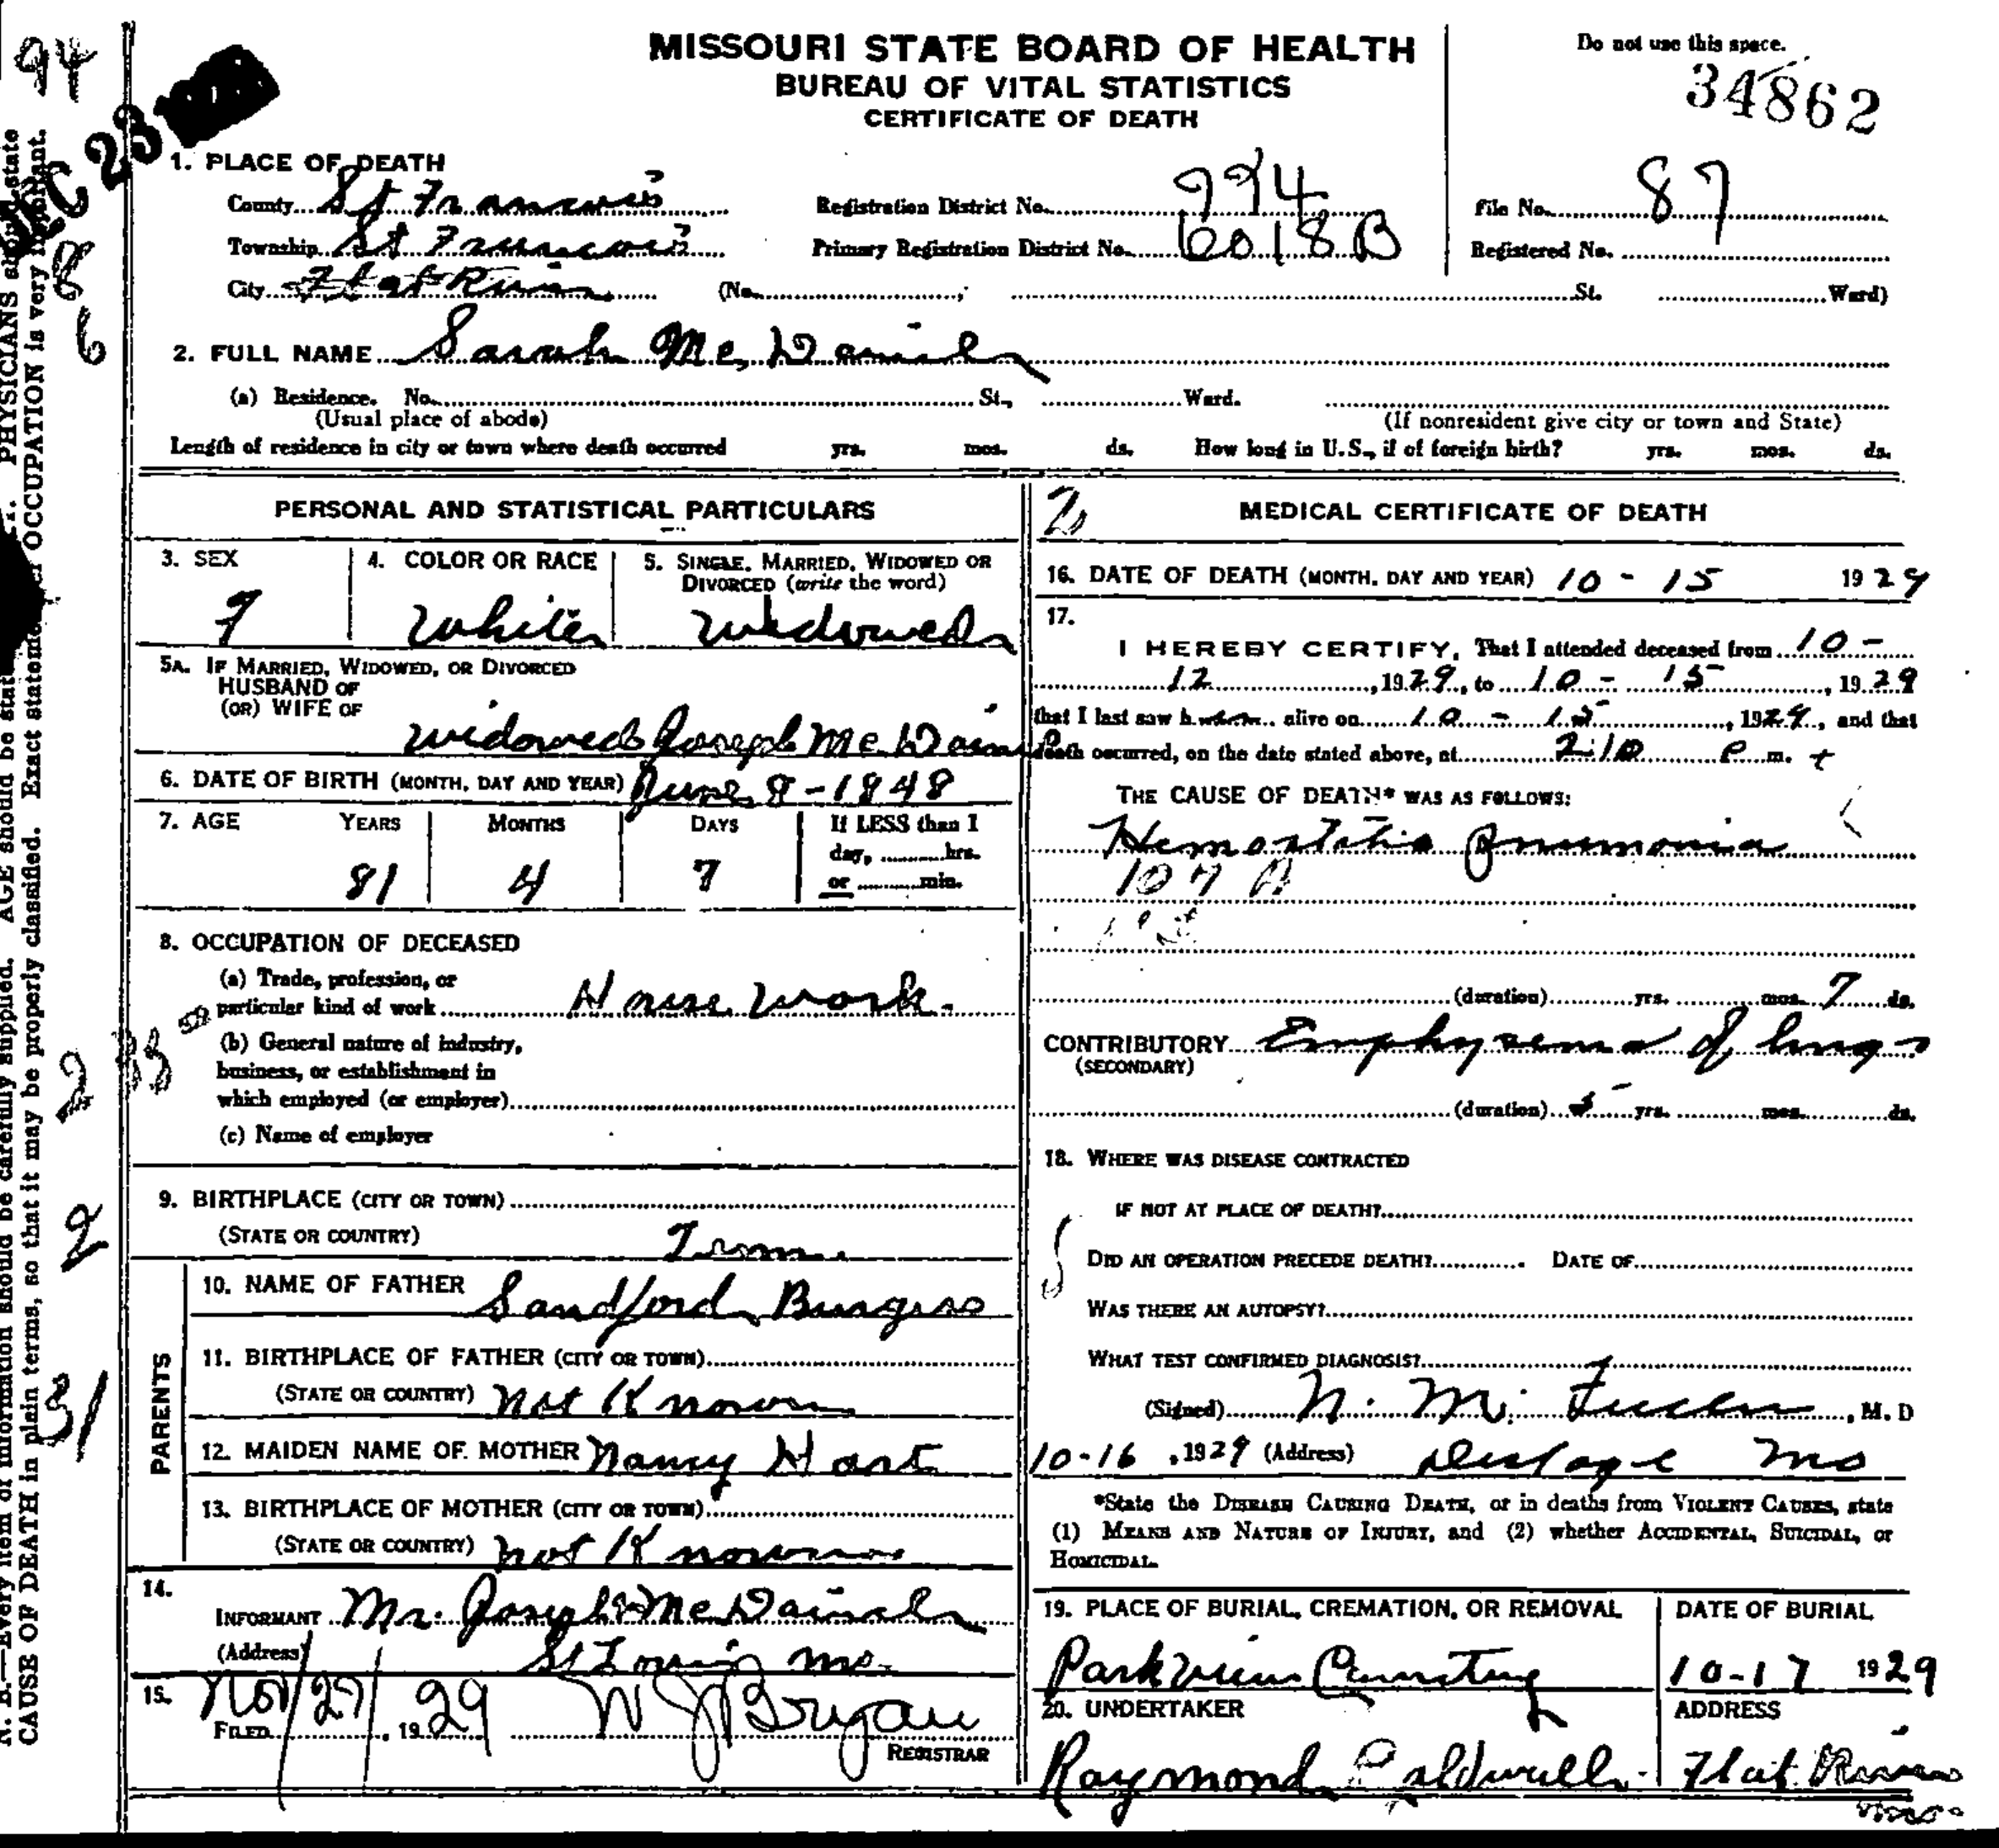 MISSOURI STATE BOARD OF HEALTH
BUREAU OF VITAL STATISTICS
CERTIFICATE OF DEATH
Do not use this space.
34862
94
DEC 23
1. PLACE OF DEATH
County St Francois
Registration District No. 774
File No. 87
Township St Francois
Primary Registration District No. 6018 B
Registered No.
City Flat River (No. ; St. Ward)
8
6
2. FULL NAME Sarah Mc Daniel
(a) Residence. No. St., Ward.
(Usual place of abode) (If nonresident give city or town and State)
Length of residence in city or town where death occurred yrs. mos. ds. How long in U.S., if of foreign birth? yrs. mos. ds.
PERSONAL AND STATISTICAL PARTICULARS
3. SEX
4. COLOR OR RACE
5. SINGLE, MARRIED, WIDOWED OR
DIVORCED (write the word)
F White Widowed
5A. IF MARRIED, WIDOWED, OR DIVORCED
HUSBAND OF
(OR) WIFE OF
widowed Joseph Mc Dainel
6. DATE OF BIRTH (MONTH, DAY AND YEAR) June 8 - 1848
7. AGE YEARS MONTHS DAYS If LESS than 1
day, hrs.
or min.
81 4 7
8. OCCUPATION OF DECEASED
(a) Trade, profession, or
particular kind of work House work.
(b) General nature of industry,
business, or establishment in
which employed (or employer)
(c) Name of employer
9. BIRTHPLACE (CITY OR TOWN)
(STATE OR COUNTRY) Tenn.
PARENTS
10. NAME OF FATHER Sandford Burgess
11. BIRTHPLACE OF FATHER (CITY OR TOWN)
(STATE OR COUNTRY) not Known
12. MAIDEN NAME OF MOTHER Nancy Hart
13. BIRTHPLACE OF MOTHER (CITY OR TOWN)
(STATE OR COUNTRY) not Known
14.
INFORMANT Mr. Joseph Mc Dainel
(Address) St Louis mo.
15.
FILED Nov 27, 1929 W J Bryan
REGISTRAR
2
MEDICAL CERTIFICATE OF DEATH
16. DATE OF DEATH (MONTH, DAY AND YEAR) 10 - 15 1929
17.
I HEREBY CERTIFY, That I attended deceased from 10 -
12, 1929, to 10 - 15, 1929
that I last saw h alive on 10 - 15, 1929, and that
death occurred, on the date stated above, at 2:10 P m.
THE CAUSE OF DEATH* WAS AS FOLLOWS:
pnumonia
107 A
(duration) yrs. mos. 7 ds.
CONTRIBUTORY Emphysema of lungs
(SECONDARY)
(duration) 5 yrs. mos. ds.
18. WHERE WAS DISEASE CONTRACTED
IF NOT AT PLACE OF DEATH?
DID AN OPERATION PRECEDE DEATH? DATE OF
WAS THERE AN AUTOPSY?
WHAT TEST CONFIRMED DIAGNOSIS?
(Signed) N. M. , M. D
10-16, 1929 (Address) Desloge Mo
*State the DISEASE CAUSING DEATH, or in deaths from VIOLENT CAUSES, state
(1) MEANS AND NATURE OF INJURY, and (2) whether ACCIDENTAL, SUICIDAL, or
HOMICIDAL.
19. PLACE OF BURIAL, CREMATION, OR REMOVAL
DATE OF BURIAL
Parkview Cemetery 10-17 1929
20. UNDERTAKER
ADDRESS
Raymond Caldwell. Flat River
mo.
N. B.—Every item of information should be carefully supplied. AGE should be stated PHYSICIANS should state
CAUSE OF DEATH in plain terms, so that it may be properly classified. Exact statement of OCCUPATION is very important.
2
31